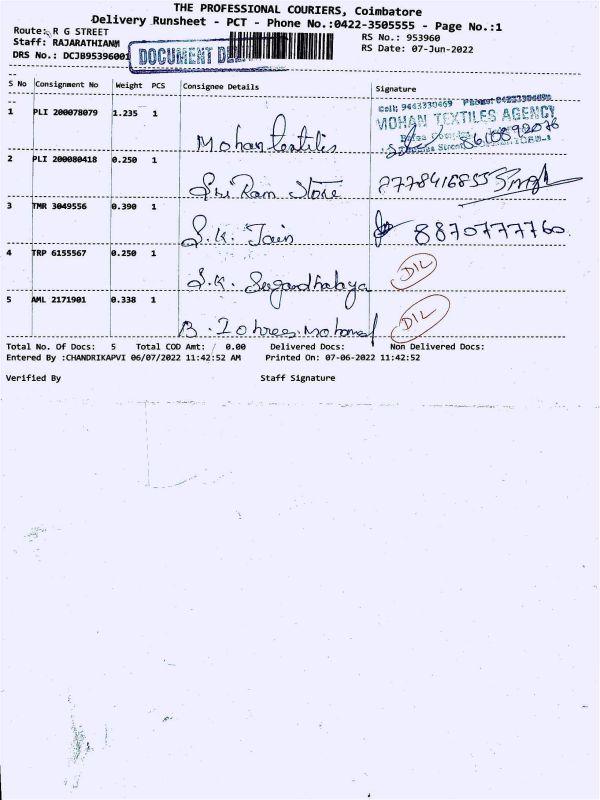 THE PROFESSIONAL COURIERS, Coimbatore
Delivery Runsheet - PCT - Phone No.:0422-3505555 - Page No.:1
Route: R G STREET
RS No.: 953960
Staff: RAJARATHIANM
RS Date: 07-Jun-2022
DRS No.: DCJB95396001
DOCUMENT
S No Consignment No Weight PCS Consignee Details Signature
1 PLI 200078079 1.235 1 Mohan textiles
Cell: 9443330469
MOHAN TEXTILES AGENCY
2 PLI 200080418 0.250 1 Sri Ram Store
3 TMR 3049556 0.390 1 S.K. Jain 8870777760
4 TRP 6155567 0.250 1 S.K. DIL
5 AML 2171901 0.338 1 B. DIL
Total No. Of Docs: 5 Total COD Amt: / 0.00 Delivered Docs: Non Delivered Docs:
Entered By :CHANDRIKAPVI 06/07/2022 11:42:52 AM Printed On: 07-06-2022 11:42:52
Verified By Staff Signature